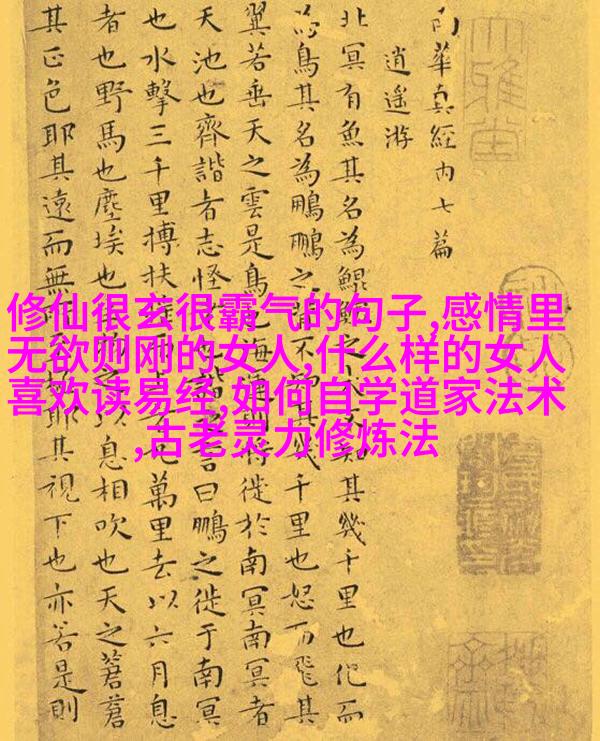 南華真經内七篇
逍遥游
北冥有魚其名為鯤鯤之大不知其幾千里也化而
為鳥其名為鵬鵬之背不知其幾千里也怒而飛其
翼若垂天之雲是鳥也海運則將徙於南冥南冥者
天池也齊諧者志怪者也諧之言曰鵬之徙于南冥
也水擊三千里搏扶搖而上者九萬里去以六月息
者也野馬也塵埃也生物之以息相吹也天之蒼蒼
其正色耶其遠而無所至極耶其視下也亦若是則
大雅堂
修仙很玄很霸气的句子,感情里
无欲则刚的女人,什么样的女人
喜欢读易经,如何自学道家法术
,古老灵力修炼法